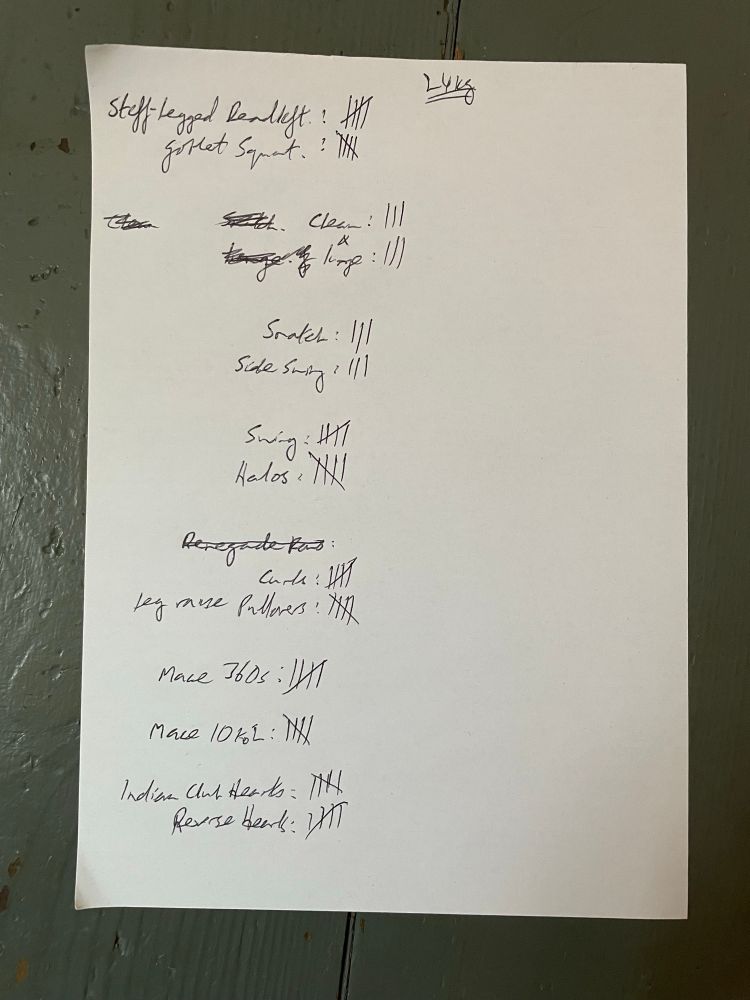 24kg
Stiff-Legged Deadlift : 𝍸
Goblet Squat. : 𝍸
Clean : |||
& lunge : |||
Snatch : |||
Side Swing : |||
Swing : 𝍸
Halos : 𝍸
Renegade Rows :
Curls : 𝍸
Leg raise Pullovers : 𝍸
Mace 360s : 𝍸
Mace 10 to 2 : 𝍸
Indian Club Hearts : 𝍸
Reverse Hearts : 𝍸